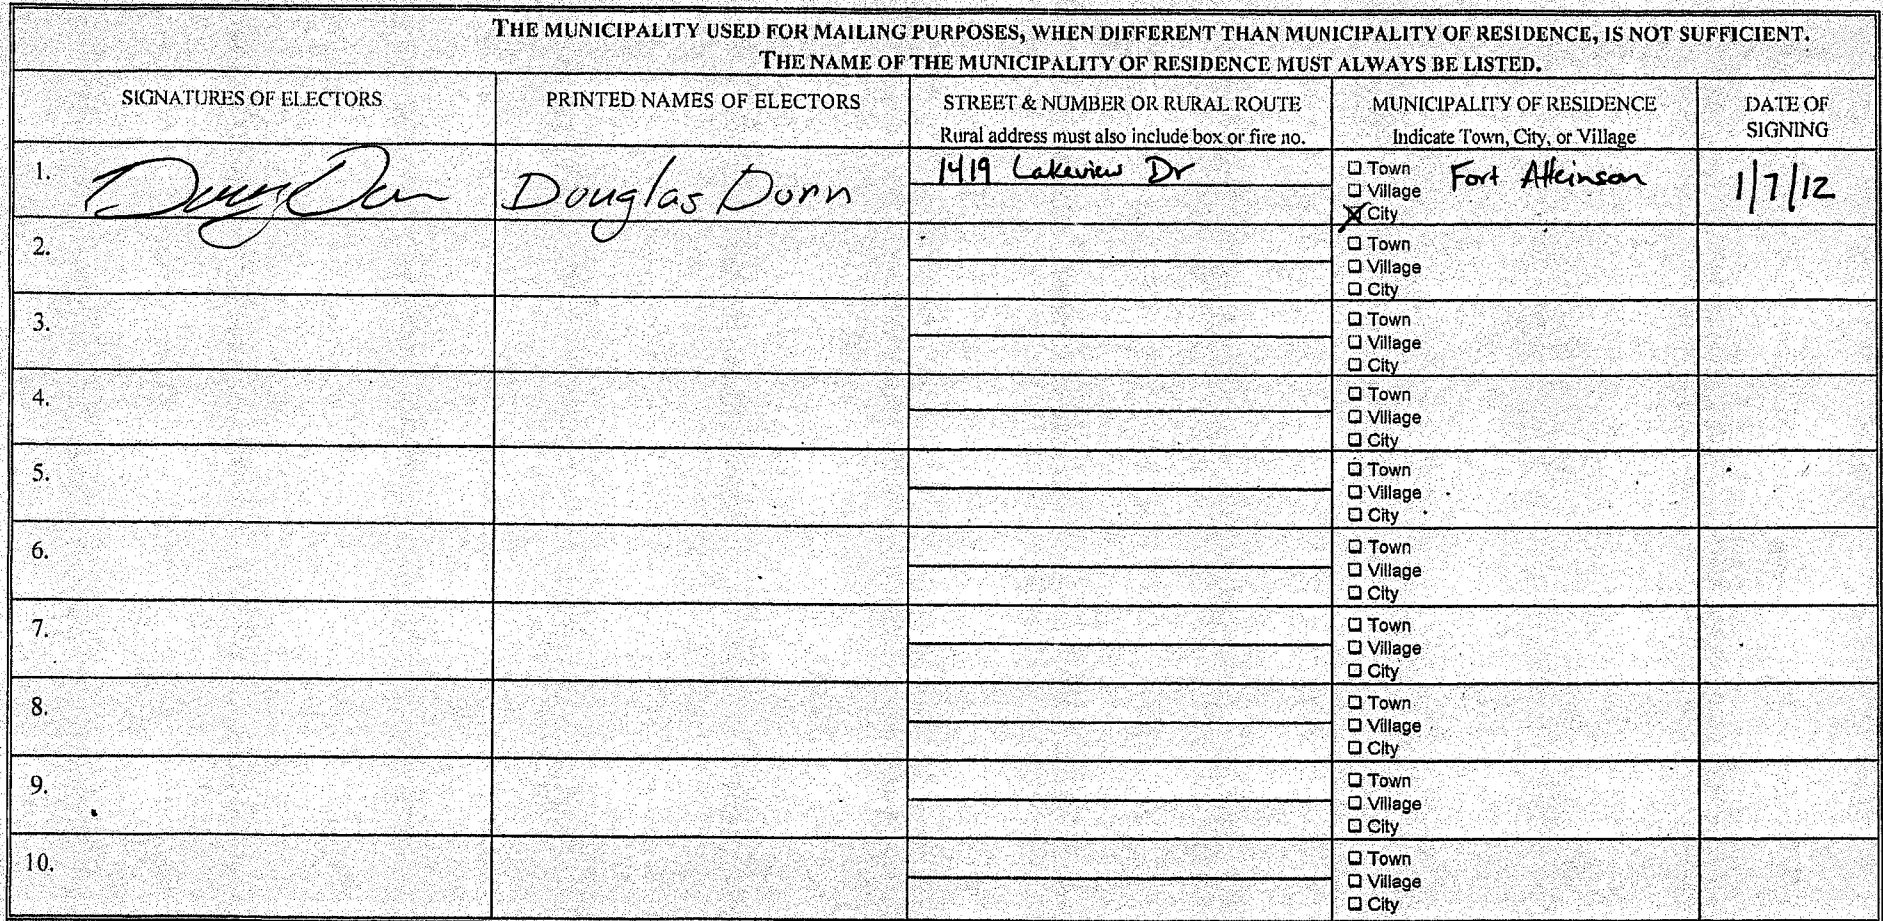 THE MUNICIPALITY USED FOR MAILING PURPOSES, WHEN DIFFERENT THAN MUNICIPALITY OF RESIDENCE, IS NOT SUFFICIENT.
THE NAME OF THE MUNICIPALITY OF RESIDENCE MUST ALWAYS BE LISTED.
SIGNATURES OF ELECTORS
PRINTED NAMES OF ELECTORS
STREET & NUMBER OR RURAL ROUTE
Rural address must also include box or fire no.
MUNICIPALITY OF RESIDENCE
Indicate Town, City, or Village
DATE OF
SIGNING
1.
Douglas Dunn
1419 Lakeview Dr
Town
Village
City
Fort Atkinson
1/7/12
2.
Town
Village
City
3.
Town
Village
City
4.
Town
Village
City
5.
Town
Village
City
6.
Town
Village
City
7.
Town
Village
City
8.
Town
Village
City
9.
Town
Village
City
10.
Town
Village
City